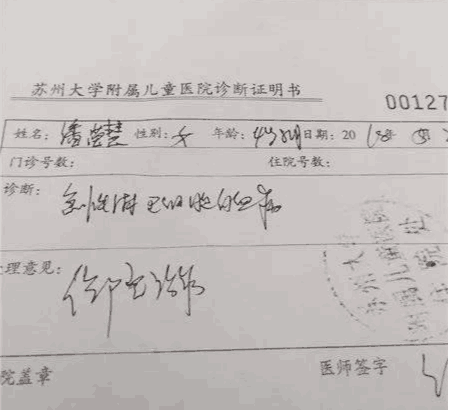 苏州大学附属儿童医院诊断证明书
00127
姓名: 潘莹慧 性别: 女 年龄: 4岁 日期: 20
门诊号数: 住院号数:
诊断: 急性淋巴细胞白血病
理意见: 住院治疗
院盖章 医师签字